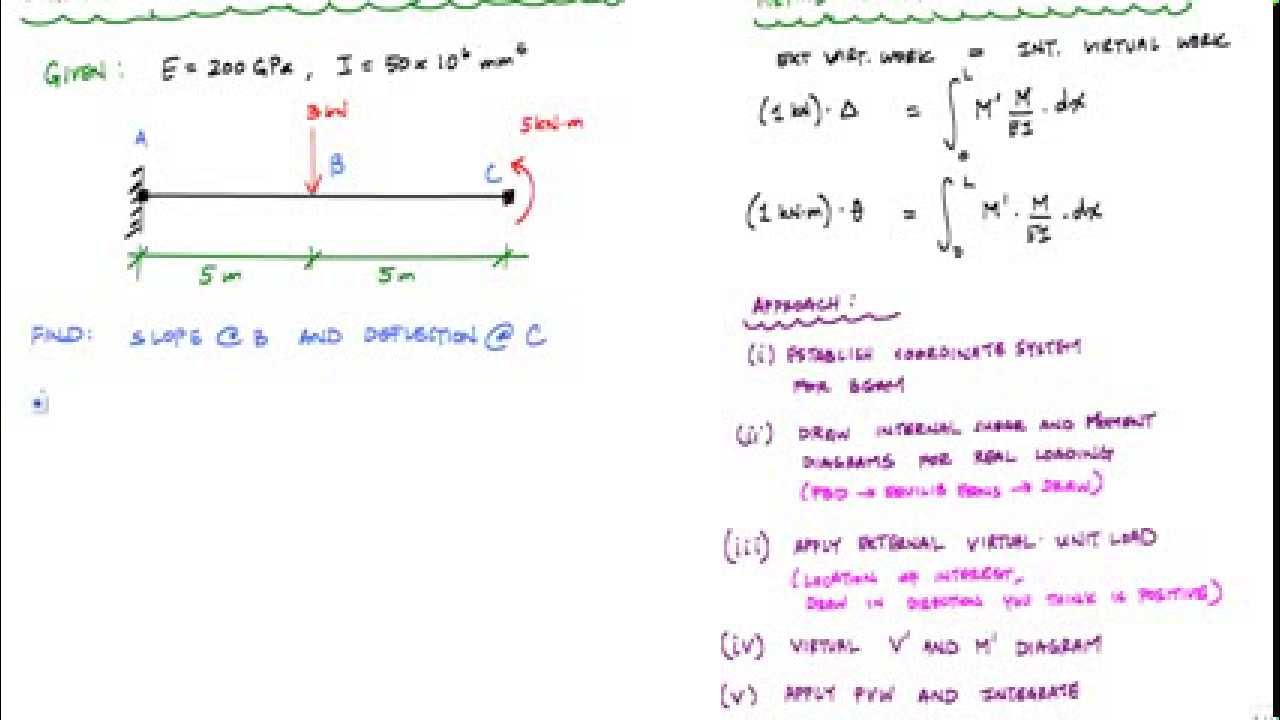 GIVEN: E = 200 GPa, I = 50 x 10⁶ mm⁴
3 kN
5 kN·m
A
B
C
5 m
5 m
FIND: SLOPE @ B AND DEFLECTION @ C
EXT VIRT. WORK = INT. VIRTUAL WORK
(1 kN) · Δ = ∫₀ᴸ M' M/EI · dx
(1 kN·m) · θ = ∫₀ᴸ M' · M/EI · dx
APPROACH:
(i) ESTABLISH COORDINATE SYSTEM
FOR BEAM
(ii) DRAW INTERNAL SHEAR AND MOMENT
DIAGRAMS FOR REAL LOADING
(FBD → EQUILIB EQNS → DRAW)
(iii) APPLY EXTERNAL VIRTUAL UNIT LOAD
(LOCATION OF INTEREST,
DRAW IN DIRECTION YOU THINK IS POSITIVE)
(iv) VIRTUAL V' AND M' DIAGRAM
(v) APPLY PVW AND INTEGRATE